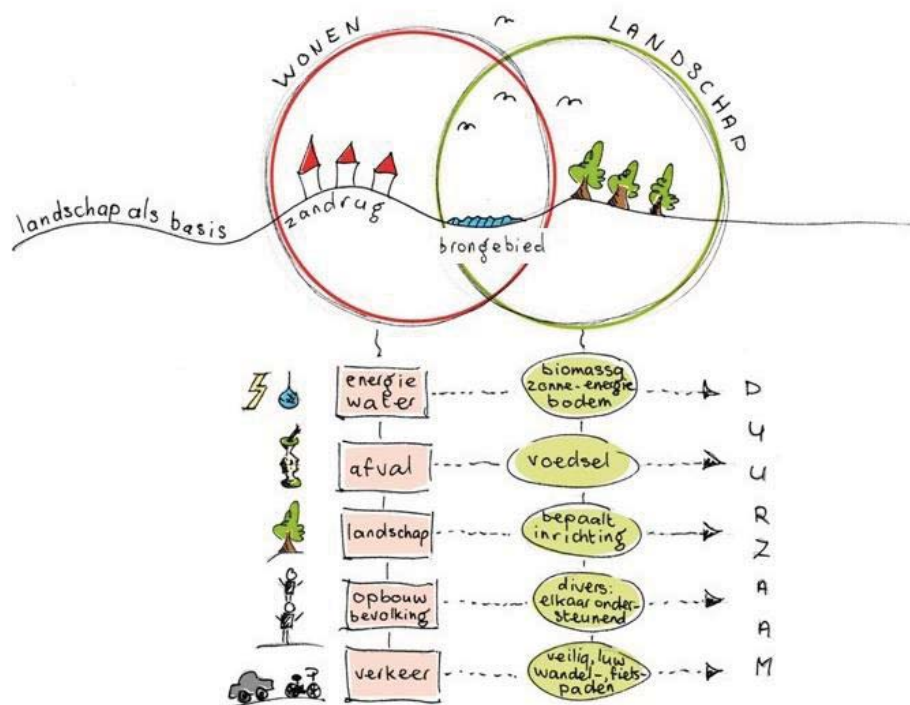 WONEN
LANDSCHAP
landschap als basis
zandrug
brongebied
energie
water
biomassa
zonne-energie
bodem
afval
voedsel
landschap
bepaalt
inrichting
opbouw
bevolking
divers:
elkaar onder-
steunend
verkeer
veilig, luw
wandel-, fiets-
paden
DUURZAAM